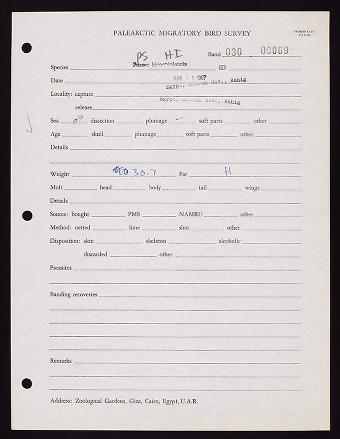 PALEARCTIC MIGRATORY BIRD SURVEY
PS HI Band 030 00069
Species ID
Date APR 1 1967
Egypt, Gov., Bahig
Locality: capture
Egypt, Gov., Bahig
release
Sex ♂? dissection plumage ✓ soft parts other
Age skull plumage soft parts other
Details
Weight 30.7 Fat H
Molt head body tail wings
Details
Source: bought PMS NAMRU other
Method: netted lime shot other
Disposition: skin skeleton alcoholic
discarded other
Parasites
Banding recoveries
Remarks
Address: Zoological Gardens, Giza, Cairo, Egypt, U.A.R.